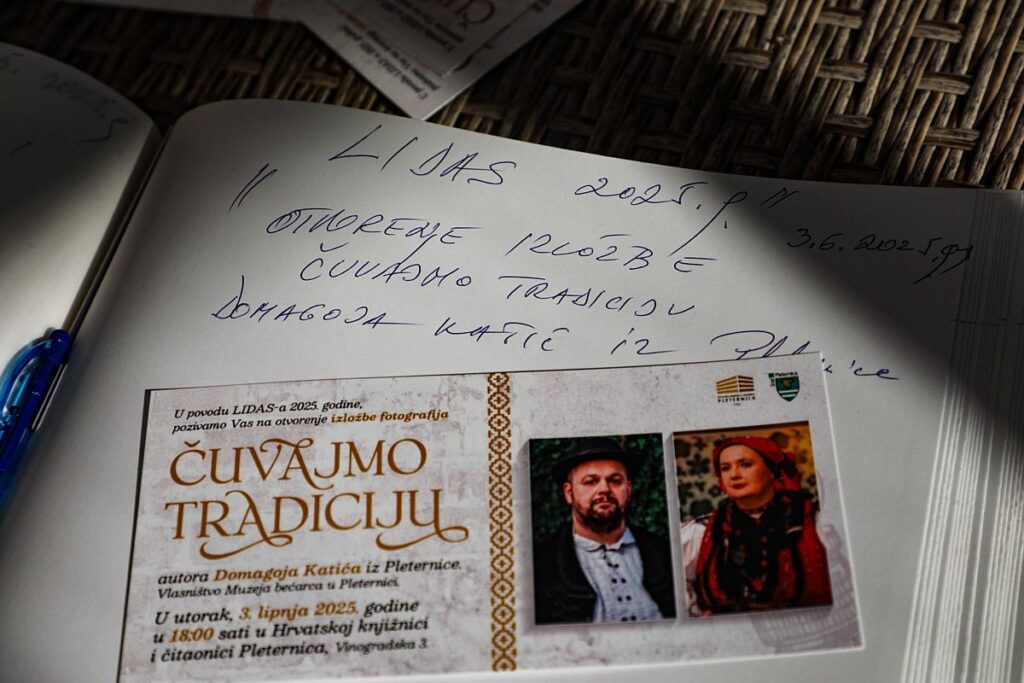 LIDAS 2025.g.
" OTVORENJE IZLOŽBE "
3.6.2025.g.
ČUVAJMO TRADICIJU
DOMAGOJA KATIĆ IZ
U povodu LIDAS-a 2025. godine,
pozivamo Vas na otvorenje izložbe fotografija
ČUVAJMO
TRADICIJU
autora Domagoja Katića iz Pleternice.
Vlasništvo Muzeja bećarca u Pleternici.
U utorak, 3. lipnja 2025. godine
u 18:00 sati u Hrvatskoj knjižnici
i čitaonici Pleternica, Vinogradska 3.
PLETERNICA
Pleternica